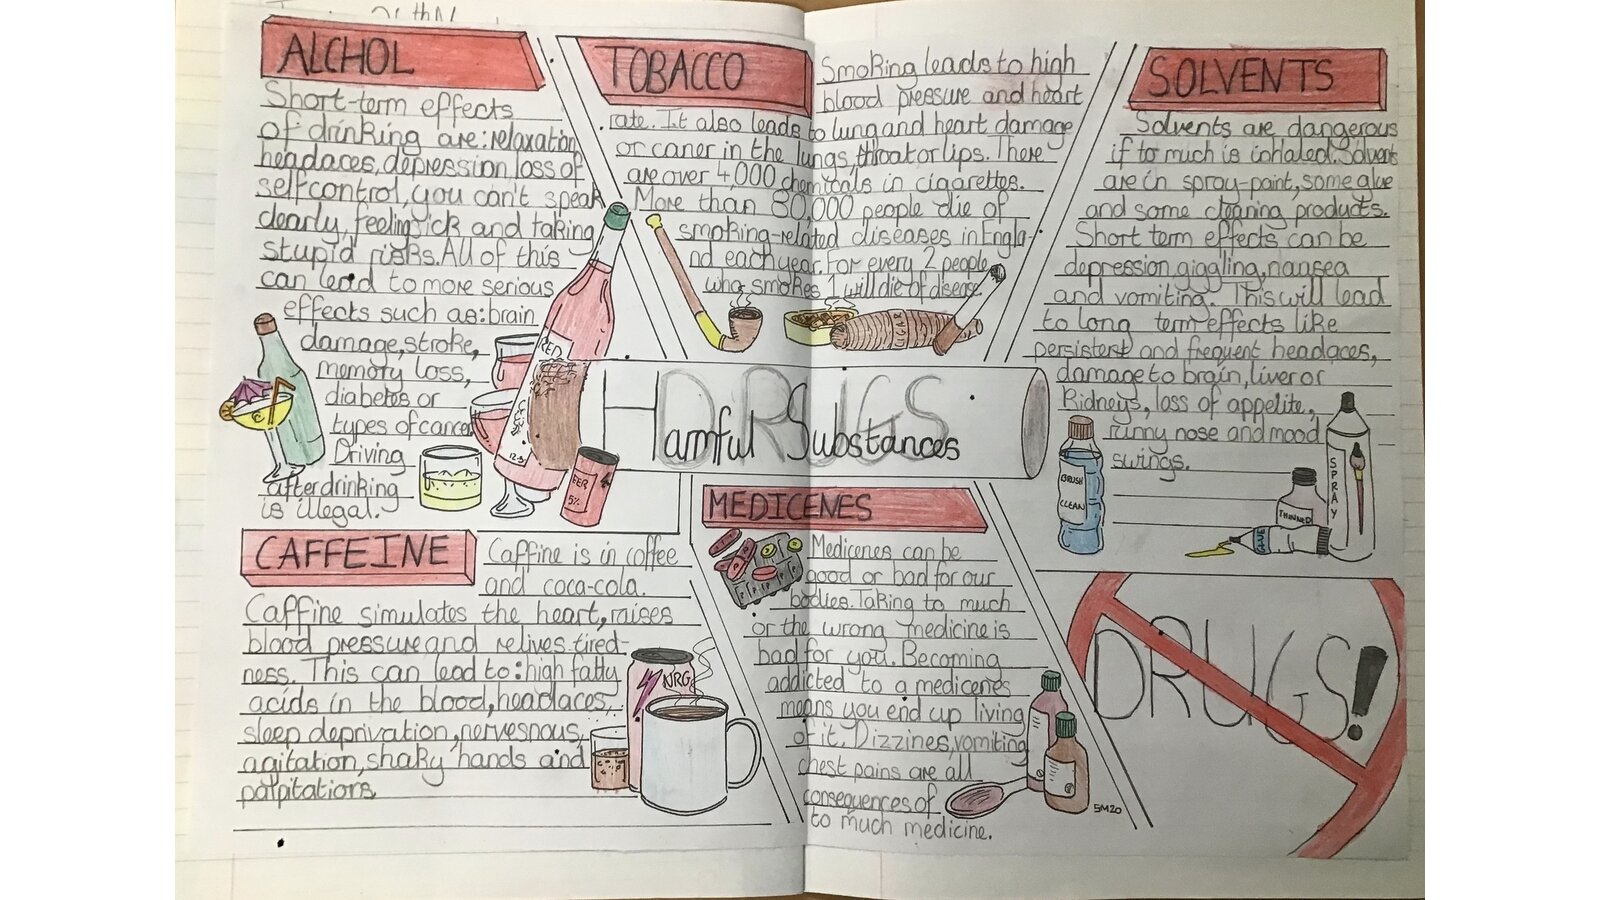 ALCHOL
Short-term effects
of drinking are: relaxation
headaces, depression, loss of
self control, you can't speak
clearly, feeling sick and taking
stupid risks. All of this
can lead to more serious
effects such as: brain
damage, stroke,
memory loss,
diabetes or
types of cancer
Driving
after drinking
is illegal.
RED
BEER
5%
TOBACCO
Smoking leads to high
blood pressure and heart
rate. It also leads to lung and heart damage
or caner in the lungs, throat or lips. There
are over 4,000 chemicals in cigarettes.
More than 80,000 people die of
smoking-related diseases in Engla-
nd each year. For every 2 people
who smokes 1 will die of disease.
CIGAR
SOLVENTS
Solvents are dangerous
if to much is inhaled. Solvents
are in spray-paint, some glue
and some cleaning products.
Short term effects can be
depression, giggling, nausea
and vomiting. This will lead
to long term effects like
persistent and frequent headaces,
damage to brain, liver or
Kidneys, loss of appetite,
runny nose and mood
swings.
BRUSH
CLEAN
THINNED
GLUE
SPRAY
DRUGS
Harmful Substances
CAFFEINE
Caffine is in coffee
and coca-cola.
Caffine simulates the heart, raises
blood pressure and relives tired-
ness. This can lead to: high fatty
acids in the blood, headaces,
sleep deprivation, nervesnous,
agitation, shaky hands and
palpitations.
NRG
MEDICENES
Medicenes can be
good or bad for our
bodies. Taking to much
or the wrong medicine is
bad for you. Becoming
addicted to a medicenes
means you end up living
of it. Dizzines, vomiting
chest pains are all
consequences of
to much medicine.
SM20
DRUGS!